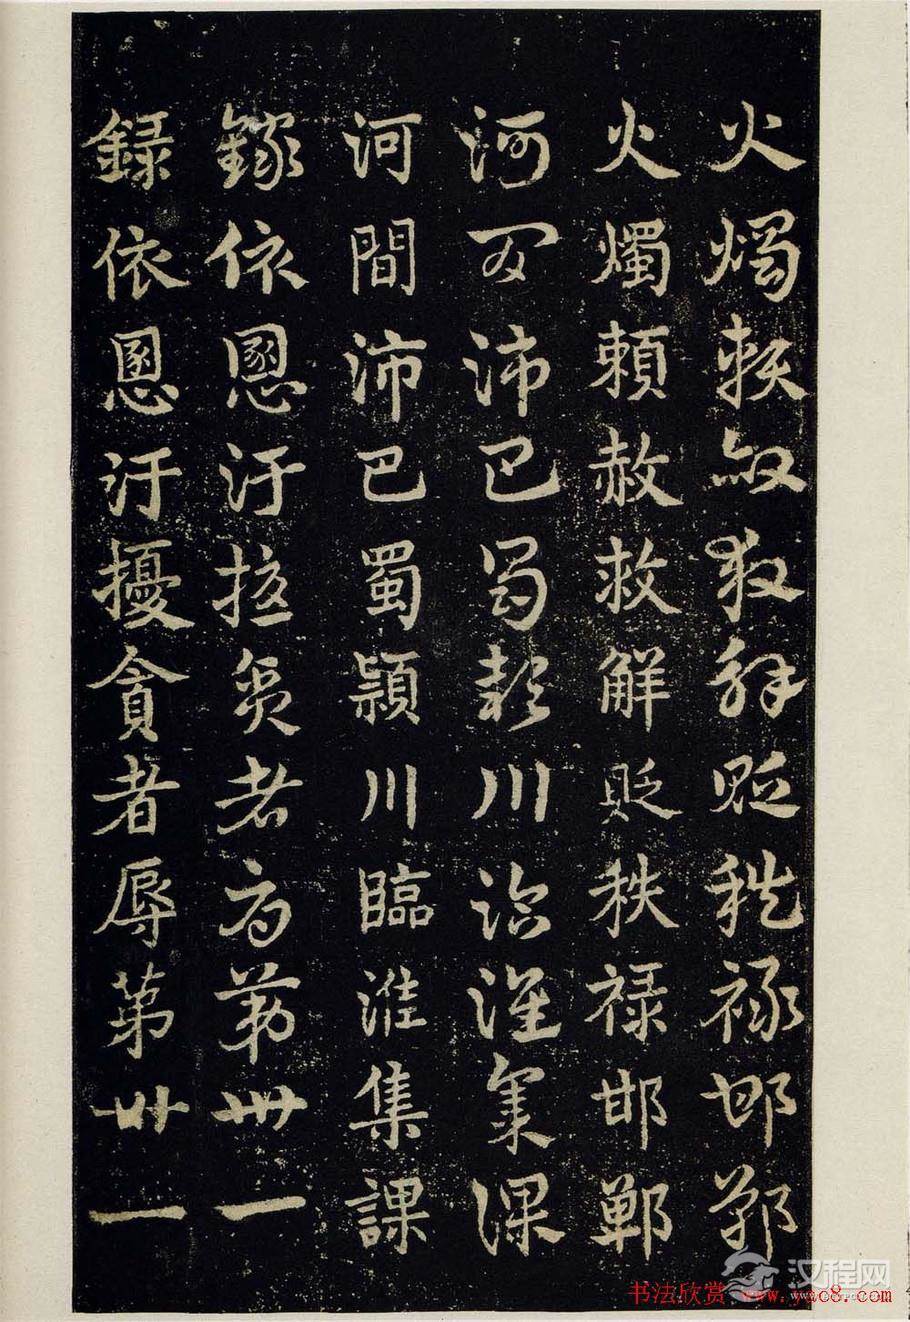 火燭赖赦救解貶秩禄邯鄲
火燭頼赦救解貶秩禄邯鄲
河間沛巴蜀颖川臨淮集課
河間沛巴蜀潁川臨淮集課
録依恩汙擾貪者辱第卌一
録依恩汙擾貪者辱第卅一
汉程网
书法欣赏 www.yac8.com